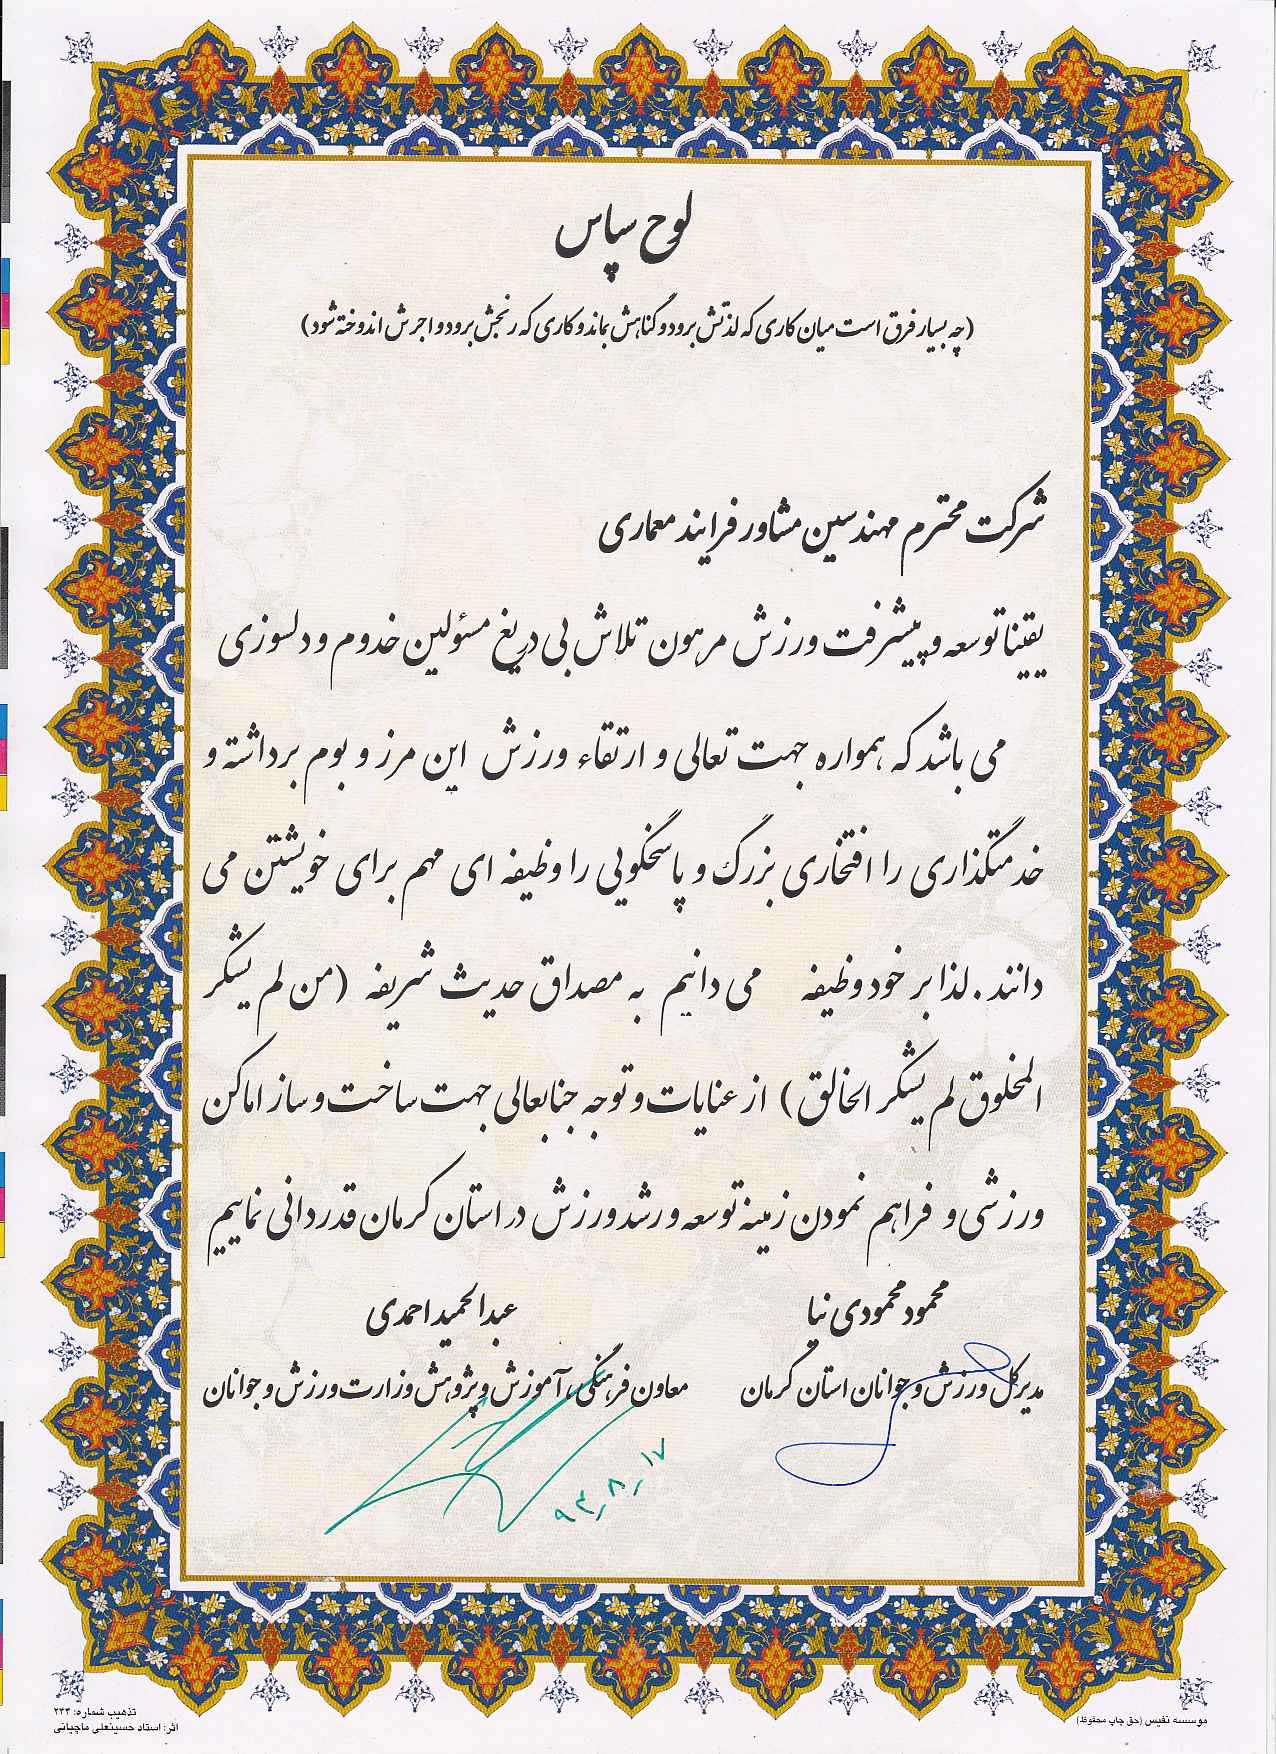 لوح سپاس
(چه بسیار فرق است میان کاری که لذتش برود و گناهش بماند و کاری که رنجش برود و اجرش اندوخته شود)
شرکت محترم مهندسین مشاور فرایند معماری
یقینا توسعه و پیشرفت ورزش مرهون تلاش بی دریغ مسئولین خدوم و دلسوزی
می باشد که همواره جهت تعالی و ارتقاء ورزش این مرز و بوم برداشته و
خدمتگذاری را افتخاری بزرگ و پاسخگویی را وظیفه ای مهم برای خویشتن می
دانند. لذا بر خود وظیفه می دانیم به مصداق حدیث شریفه (من لم یشکر
المخلوق لم یشکر الخالق) از عنایات و توجه جنابعالی جهت ساخت و ساز اماکن
ورزشی و فراهم نمودن زمینه توسعه و رشد ورزش در استان کرمان قدردانی نماییم
محمود محمودی نیا
مدیرکل ورزش و جوانان استان کرمان
عبدالحمید احمدی
معاون فرهنگی، آموزش و پژوهش وزارت ورزش و جوانان
۹۳,۸,۱۷
موسسه نفیس (حق چاپ محفوظ)
تذهیب شماره: ۲۴۴
اثر: استاد حسینعلی ماچیانی